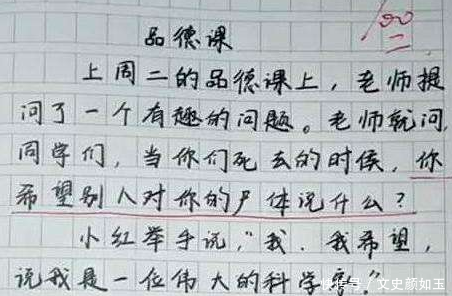 100
品德课
上周二的品德课上，老师提
问了一个有趣的问题。老师就问，
同学们，当你们死去的时候，你
希望别人对你的尸体说什么？
小红举手说，“我，我希望，
说我是一位伟大的科学家。”
快传号／文史颜如玉